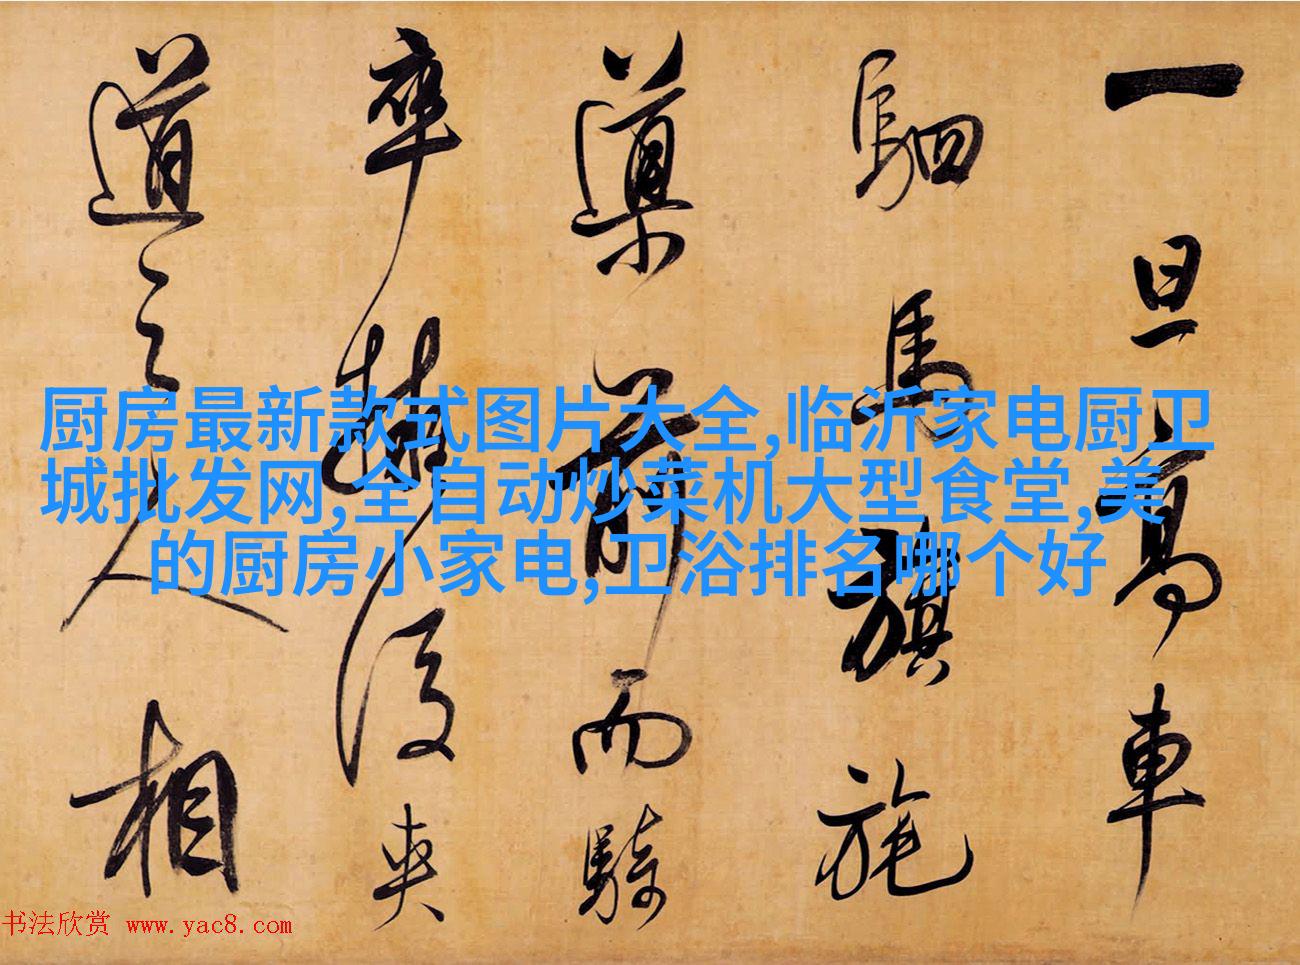 一旦高車
駟馬旗旄
導前而騎
卒擁後夾
道之人相
厨房最新款式图片大全,临沂家电厨卫
城批发网,全自动炒菜机大型食堂,美
的厨房小家电,卫浴排名哪个好
书法欣赏 www.yac8.com